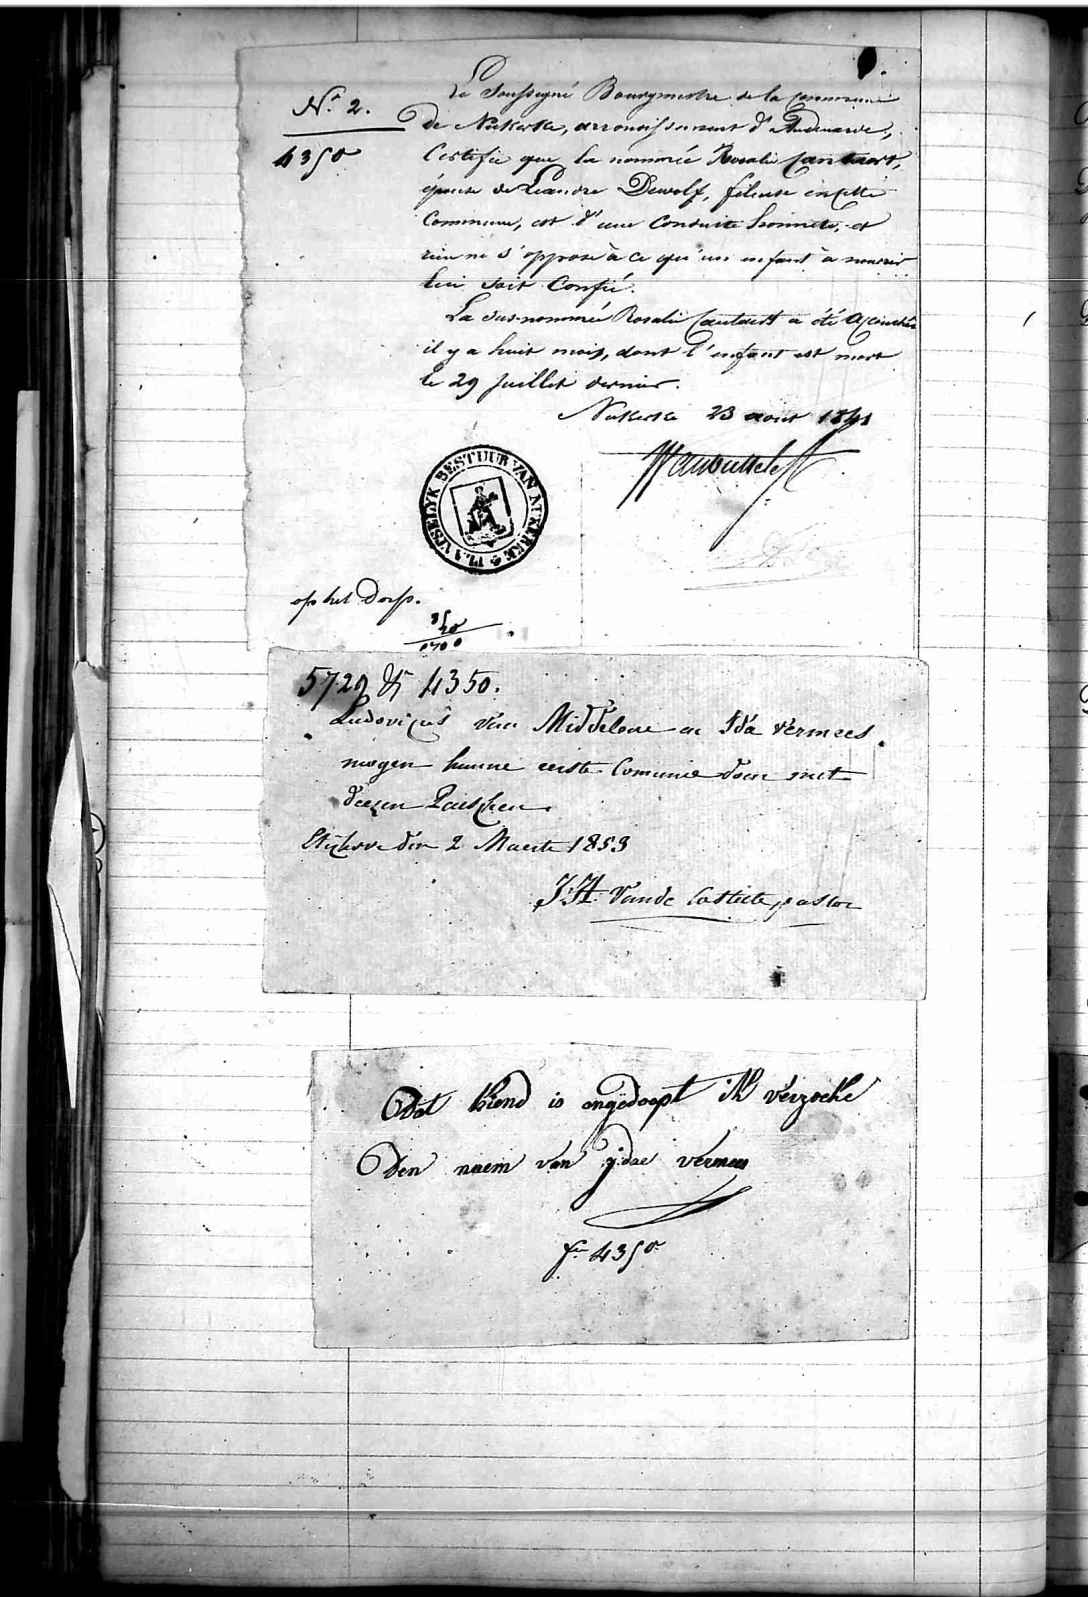 N.º 2.
4350
Le Soussigné Bourgmestre de la commune
de Nukerke, arrondissement d'Audenarde,
Certifie que la nommée Rosalie Cantaert,
épouse de Léandre Dewolf, fileuse en cette
Commune, est d'une Conduite honnête, et
rien ne s'oppose à ce qu'un enfant à nourrir
lui soit Confié.
La susnommée Rosalie Cantaert a été accouchée
il y a huit mois, dont l'enfant est mort
le 29 Juillet dernier.
Nukerke 23 aout 1841
PLAATSELYK BESTUUR VAN NUKERKE
op het Dorp.
5729 & 4350.
Ludovicus van Middelare en Ida vermees
mogen hunne eerste Comunie doen met
deesen Paeschen.
Etichove den 2 Maerte 1853
J: H. Vande Casteele, pastor
Dat kiend is ongedoopt ik verzoeke
Den naem van ydae vermees
4350